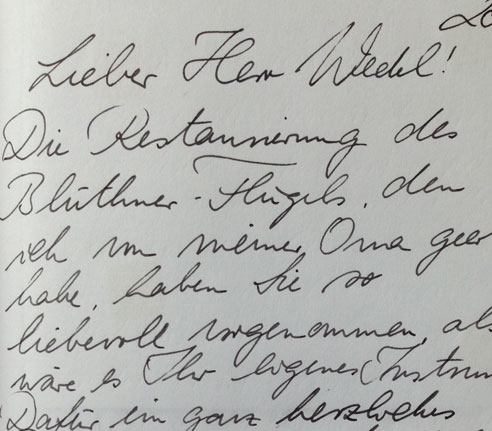 20
Lieber Herr Wedel!
Die Restaurierung des
Blüthner-Flügels, den
ich von meiner Oma geer
habe, haben Sie so
liebevoll vorgenommen, als
wäre es Ihr eigenes Instrum
Dafür ein ganz herzliches